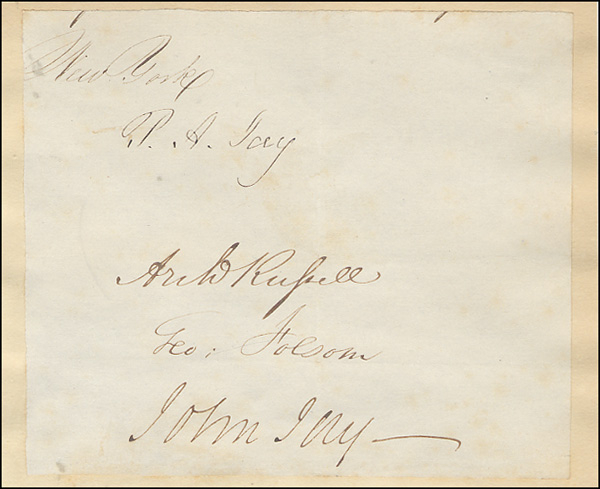 New York
P. A. Jay
Archd Russell
Geo: Folsom
John Jay